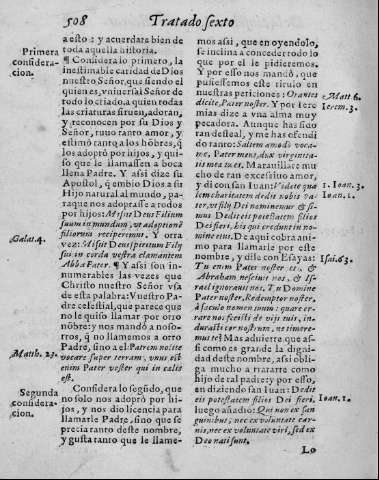 508 Tratado sexto
Primera
considera-
cion.
a esto: y acuerdara bien de
toda aquella historia.
¶ Considera lo primero, la
inestimable caridad de Dios
nuestro Señor, que siendo el
quien es, vniuersal Señor de
todo lo criado, a quien todas
las criaturas siruen, adoran,
y reconocen por su Dios y
Señor, tuuo tanto amor, y
estimò tanto a los hõbres, q̃
los adoprò por hijos, y qui-
so que le llamassen a boca
llena Padre. Y assi dize su
Apostol, q̃ embio Dios a su
Hijo natural al mundo, pa-
raque nos adoprasse a todos
por hijos: Misit Deus Filium
suum in mundum, vt adoptionẽ
filiorum reciperemus. Y otra
Galat. 4.
vez: Missit Deus spiritum Filij
sui in corda vestra clamantem
Abba Pater. ¶ Y assi son in-
numerables las vezes que
Christo nuestro Señor vsa
de esta palabra: Vuestro Pa-
dre celestial, que parece que
no le quiso llamar por otro
nõbre: y nos mandò a noso-
tros, q̃ no llamemos a otro
Padre, sino a el: Patrem nolite
Matth. 23.
vocare super terram, vnus est
enim Pater vester qui in cælis
est.
Segunda
considera-
cion.
Considera lo segũdo, que
no solo nos adoprò por hi-
jos, y nos dio licencia para
llamarle Padre, sino que se
precia tanto deste nombre,
y gusta tanto que le llame-
mos assi, que en oyendolo,
se inclina a conceder todo lo
que por el le pidieremos.
Y por esso nos mandò, que
pusiessemos este titulo en
nuestras peticiones: Orantes
Matt 6.
dicite, Pater noster. Y por Iere
Ierem. 3.
mias dize a vna alma muy
pecadora. Aunque has sido
tan desleal, y me has ofendi
do tanto: Saltem amodò voca-
me, Pater meus, dux virginita-
tis meæ tu es. Marauillare mu
cho de tan excessiuo amor,
y di con san Iuan: Videte qua
1. Ioan. 3.
lem charitatem dedit nobis Pa-
Ioan. 1.
ter, vt filij Dei nominemur & si-
mus Dedit eis potestatem filios
Dei fieri, his qui credunt in no-
mine eius. De aqui cobra ani-
mo para llamarle por este
nombre, y dile con Esayas:
Isai. 63.
Tu enim Pater noster es, &
Abraham nesciuit nos, & Is-
rael ignorauit nos. Tu Domine
Pater noster, Redemptor noster,
à sæculo nomen tuum: quare er-
rare nos fecisti de vijs tuis, in-
durasti cor nostrum, ne timere-
mus te? Mas aduierte que as-
si como es grande la digni-
dad deste nombre, assi obli-
ga mucho a tratarte como
hijo de tal padre: y por esso,
en diziendo san Iuan: Dedit
Ioan. 1.
eis potestatem filios Dei fieri,
luego añadio: Qui non ex san
guinibus, nec ex voluntate car-
nis, nec ex voluntate viri, sed ex
Deo nati sunt.
Lo